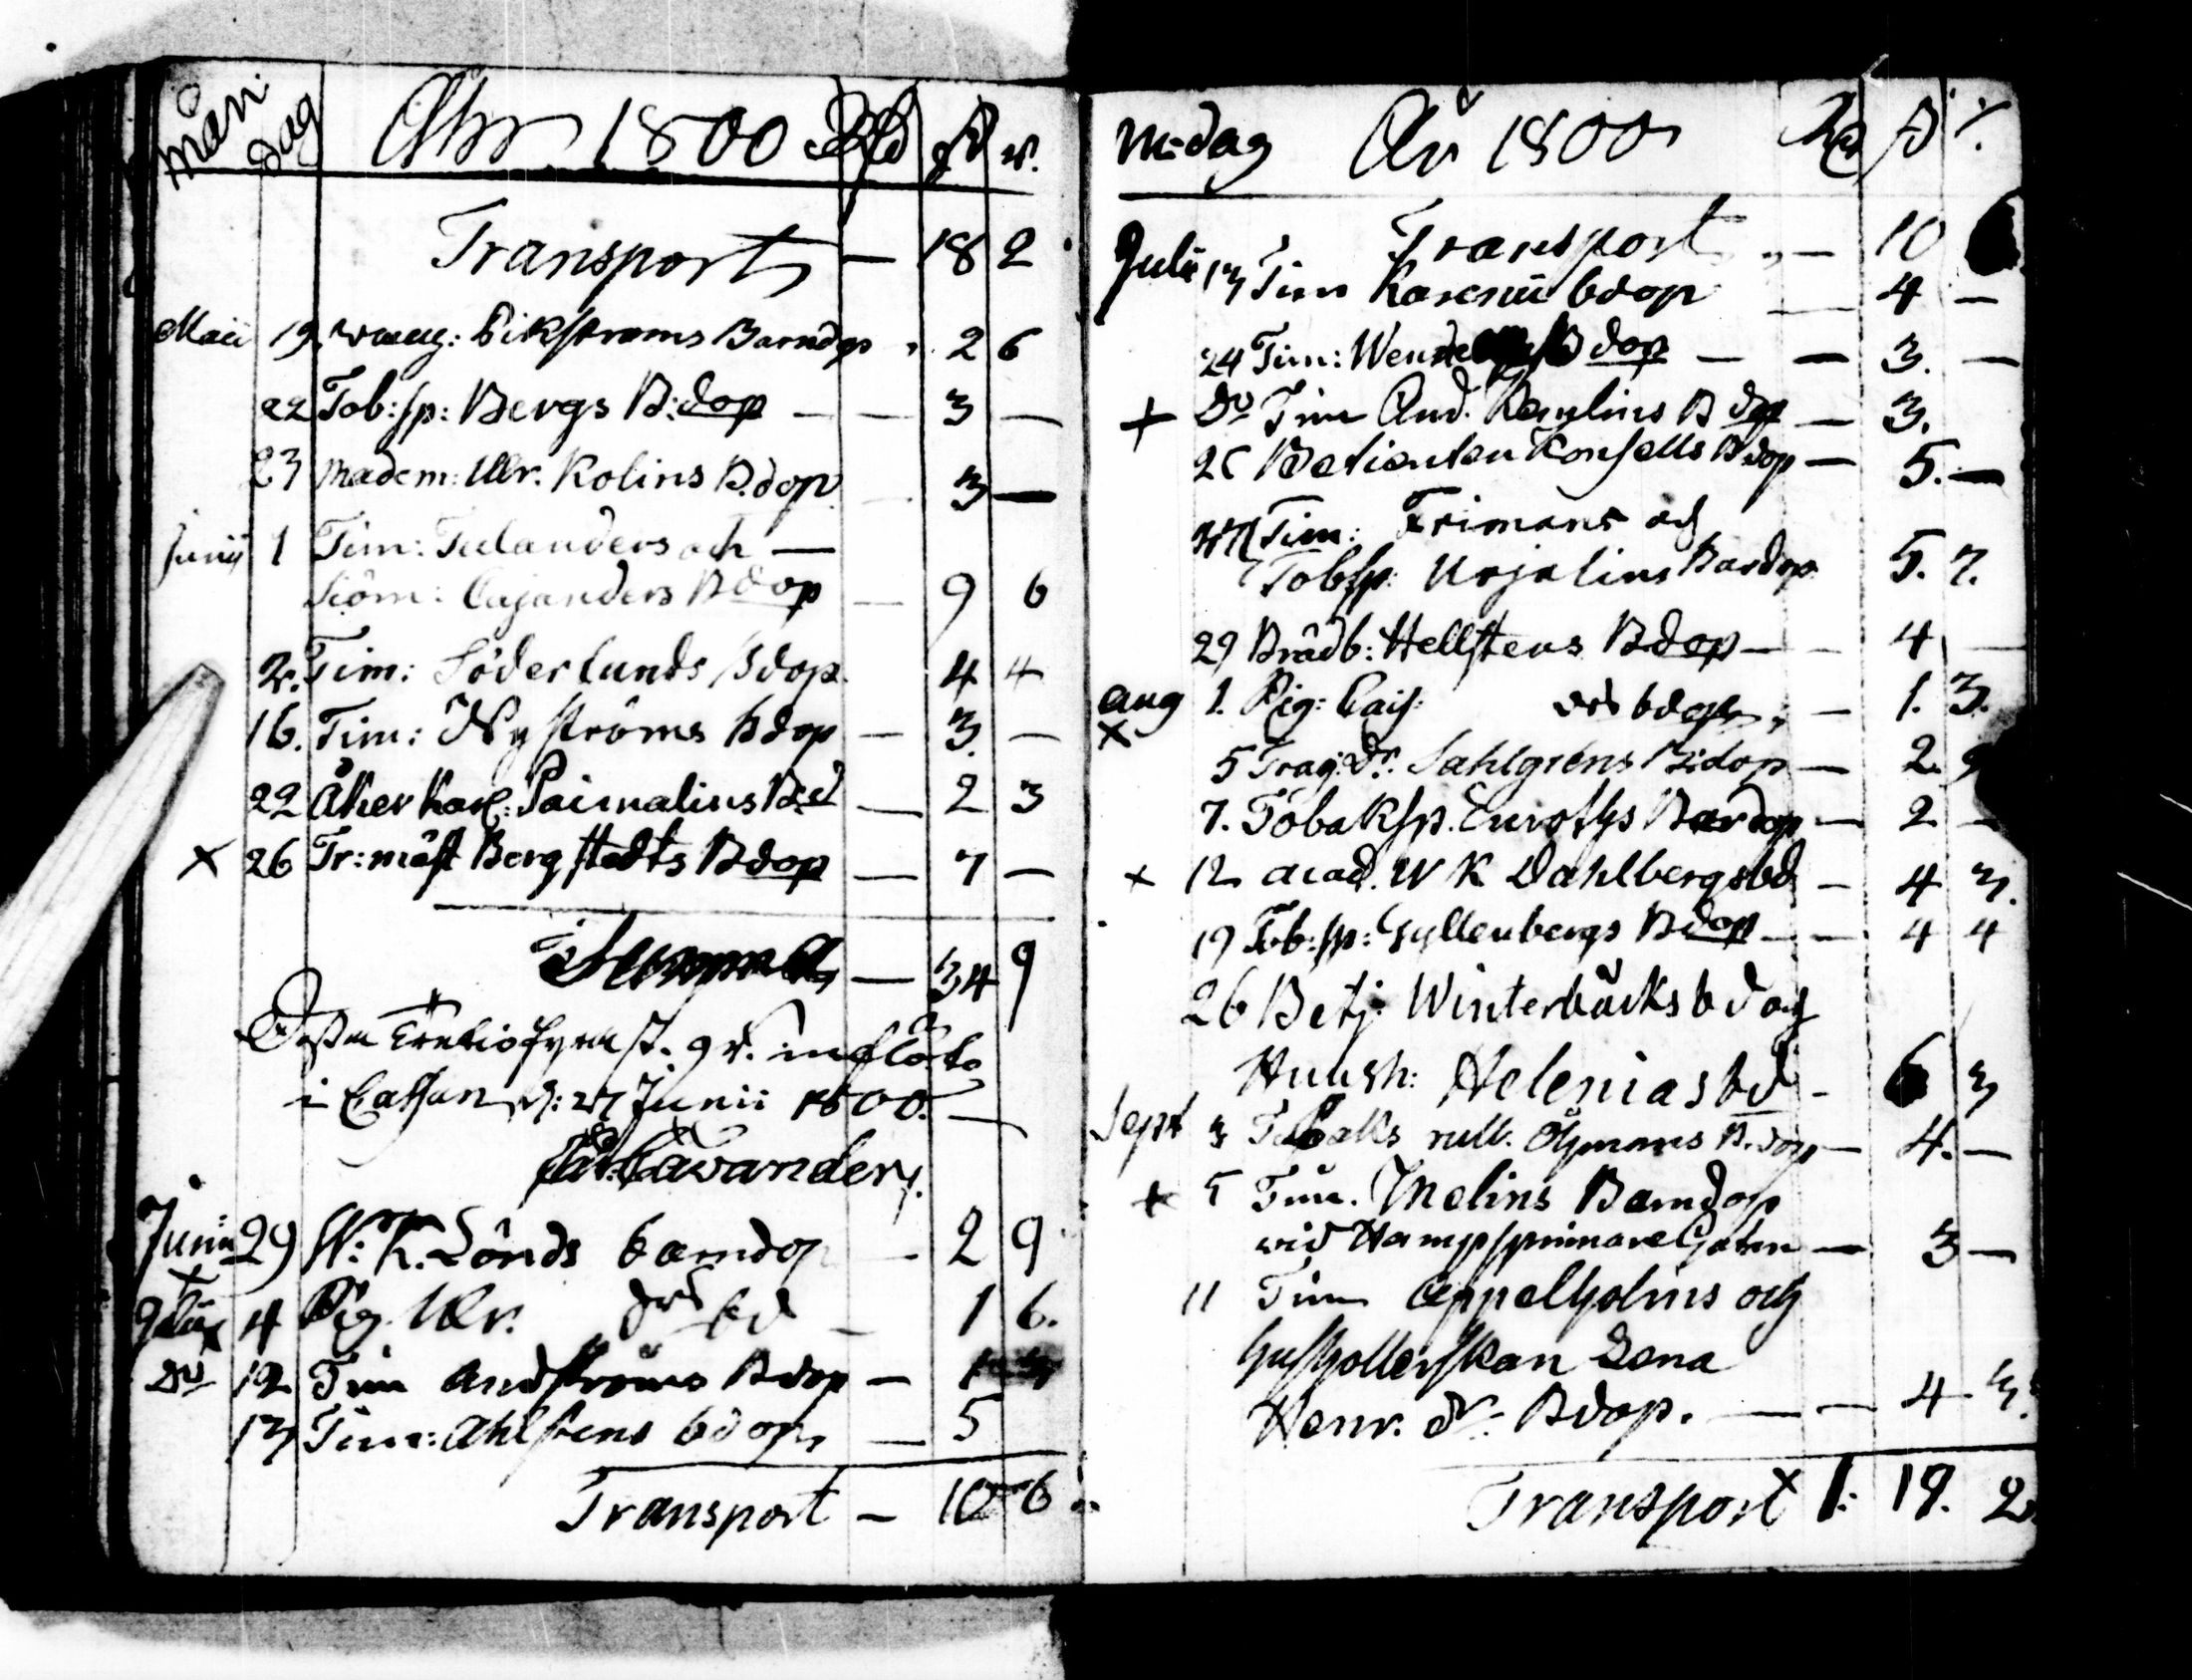 mån dag Åhr 1800 Rd ß r.
Transport — 18 2
Maii 19. Ekströms Barndop 2 6
22 Tob:sp: Bergs B:dop — — 3 —
23 Madem: Ulr. Kolins B.dop 3 —
Junij 1 Tim: Tulanders och —
Cajanders Bdop — 9 6
2. Tim: Söderlunds Bdop. 4 4
16. Tim: Nyströms bdop — 3. —
22 Åker Karl: Paimalins Bd — 2 3
x 26 Tr:mäst Bergstedts Bdop — 7 —
Summa — 34 9
Dessa Trettiofyra ß. 9 r. influtit
i Cassan d: 27 Junii 1800. —
Cavander
Junii 29 W: K. Lönds barndop — 2 9
Julii 4 Pig. Ulr. drs bd — 1 6.
Do 12 Tim Andströms Bdop — 1
13 Tim: Ahlstens bdop, — 5
Transport — 10 6
M dag År 1800 Rd ß r.
Transport — 10
Julii 13 Tim bdop — 4 —
24 Tim: Bdop — — 3. —
+ Do Tim And. Bdop — 3.
Betienten Bdop — 5. —
Tim: Frimans och
Tobsp: Urjalins Bardop 5. 7.
29 Brådb: Hellstens Bdop — 4 —
aug 1. Pig: Cais: drs bdop — 1. 3.
x
5 Dr. Sahlgrens B:dop — 2. 9
7. Tobaksp. Bardop — 2 —
+ 12 acad. W K Dahlbergs bd — 4 3.
19 Tob:sp: Gyllenbergs Bdop — — 4 4
26 Betj: Winterbäcks bd och
Hush: Helenias bd — 6 3
Sept 3 Tobaks rull. Öhmans B.dop — 4. —
+ 5 Tim. Melins Barndop
wid Hampspinnare Gatan — 3 —
11 Tim Appelholms och
hushollerskan Lena
Henr. dr. Bdop. — — 4 3.
Transport 1: 19. 2